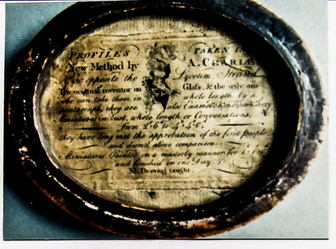 PROFILES TAKEN
New Method by A. CHARLES
opposite the Lyceum, Strand
The original inventor on Glass, & the only one
who can take them in whole length by a
they are also
Miniatures in bust, whole length or Conversations,
from
they have long met the approbation of the first people
and deem'd above comparison.
Miniatures Painted in a masterly manner for
and finished in one Day
NB Drawing taught.